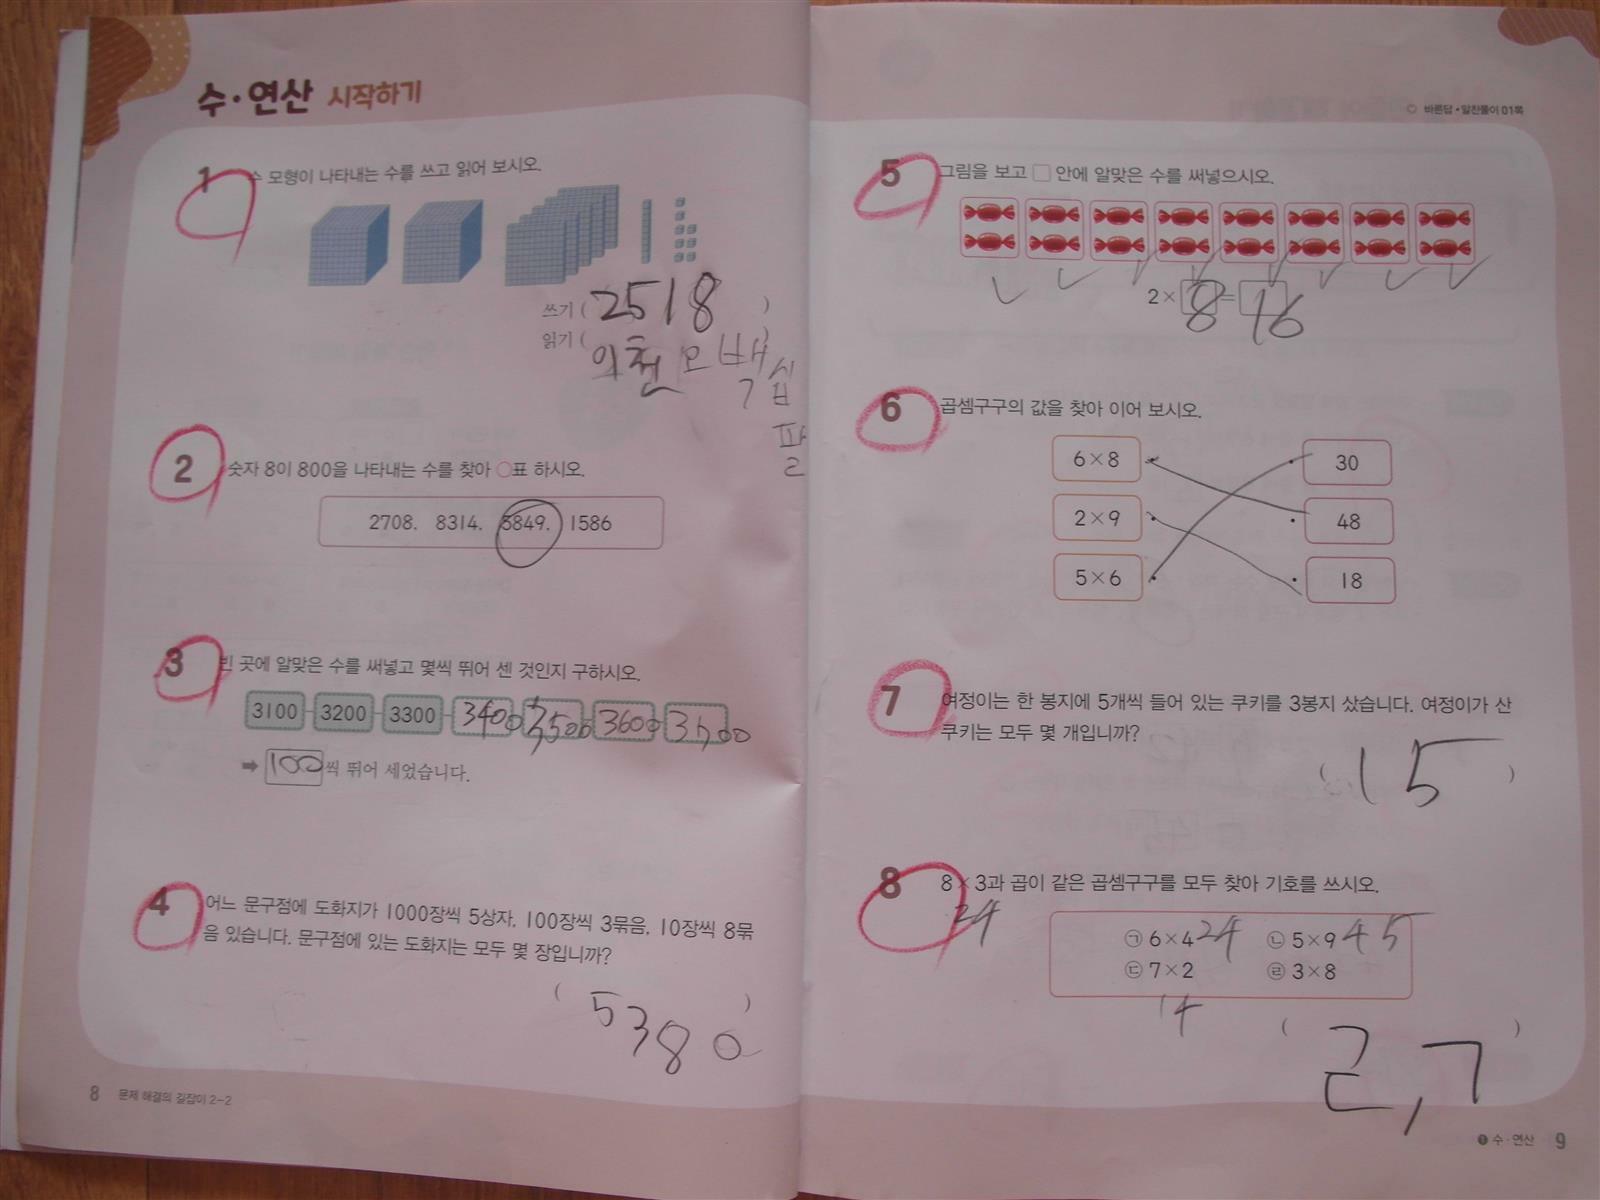 수·연산 시작하기
1 수 모형이 나타내는 수를 쓰고 읽어 보시오.
쓰기 ( 2518 )
읽기 ( 이천오백십팔 )
2 숫자 8이 800을 나타내는 수를 찾아 ○표 하시오.
2708. 8314. 3849. 1586
3 빈 곳에 알맞은 수를 써넣고 몇씩 뛰어 센 것인지 구하시오.
3100 3200 3300 3400 3500 3600 3700
➡ 100씩 뛰어 세었습니다.
4 어느 문구점에 도화지가 1000장씩 5상자, 100장씩 3묶음, 10장씩 8묶
음 있습니다. 문구점에 있는 도화지는 모두 몇 장입니까?
( 5380 )
8 문제 해결의 길잡이 2-2
바른답·알찬풀이 01쪽
5 그림을 보고 □ 안에 알맞은 수를 써넣으시오.
2×8=16
6 곱셈구구의 값을 찾아 이어 보시오.
6×8 30
2×9 48
5×6 18
7 여정이는 한 봉지에 5개씩 들어 있는 쿠키를 3봉지 샀습니다. 여정이가 산
쿠키는 모두 몇 개입니까?
( 15 )
8 8×3과 곱이 같은 곱셈구구를 모두 찾아 기호를 쓰시오.
24
㉠ 6×4 24 ㉡ 5×9 45
㉢ 7×2 ㉣ 3×8
14
( ㄹ,ㄱ )
❶ 수·연산 9